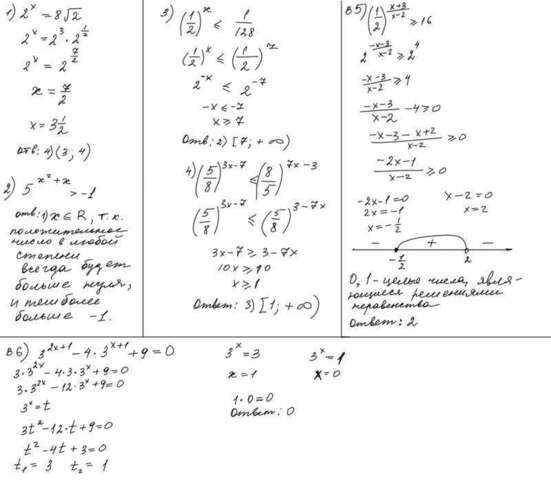 1) 2^x = 8√2
2^x = 2^3 · 2^(1/2)
2^x = 2^(7/2)
x = 7/2
x = 3 1/2
отв: 4) (3; 4)
2) 5^(x²+x) > -1
отв: 1) x ∈ R, т.к.
положительное
число в любой
степени
всегда будет
больше нуля,
и тем более
больше -1.
3) (1/2)^x ≤ 1/128
(1/2)^x ≤ (1/2)^7
2^(-x) ≤ 2^(-7)
-x ≤ -7
x ≥ 7
Отв: 2) [7; +∞)
4) (5/8)^(3x-7) ≤ (8/5)^(7x-3)
(5/8)^(3x-7) ≤ (5/8)^(3-7x)
3x-7 ≥ 3-7x
10x ≥ 10
x ≥ 1
Ответ: 3) [1; +∞)
В5) (1/2)^((x+3)/(x-2)) ≥ 16
2^((-x-3)/(x-2)) ≥ 2^4
(-x-3)/(x-2) ≥ 4
(-x-3)/(x-2) - 4 ≥ 0
(-x-3-x+2)/(x-2) ≥ 0
(-2x-1)/(x-2) ≥ 0
-2x-1=0 x-2=0
2x=-1 x=2
x=-1/2
- + -
-1/2 2
0, 1 - целые числа, явля-
ющиеся решениями
неравенства
Ответ: 2
В6) 3^(2x+1) - 4 · 3^(x+1) + 9 = 0
3 · 3^(2x) - 4 · 3 · 3^x + 9 = 0
3 · 3^(2x) - 12 · 3^x + 9 = 0
3^x = t
3t² - 12 · t + 9 = 0
t² - 4t + 3 = 0
t₁ = 3 t₂ = 1
3^x = 3 3^x = 1
x = 1 x = 0
1 · 0 = 0
Ответ: 0